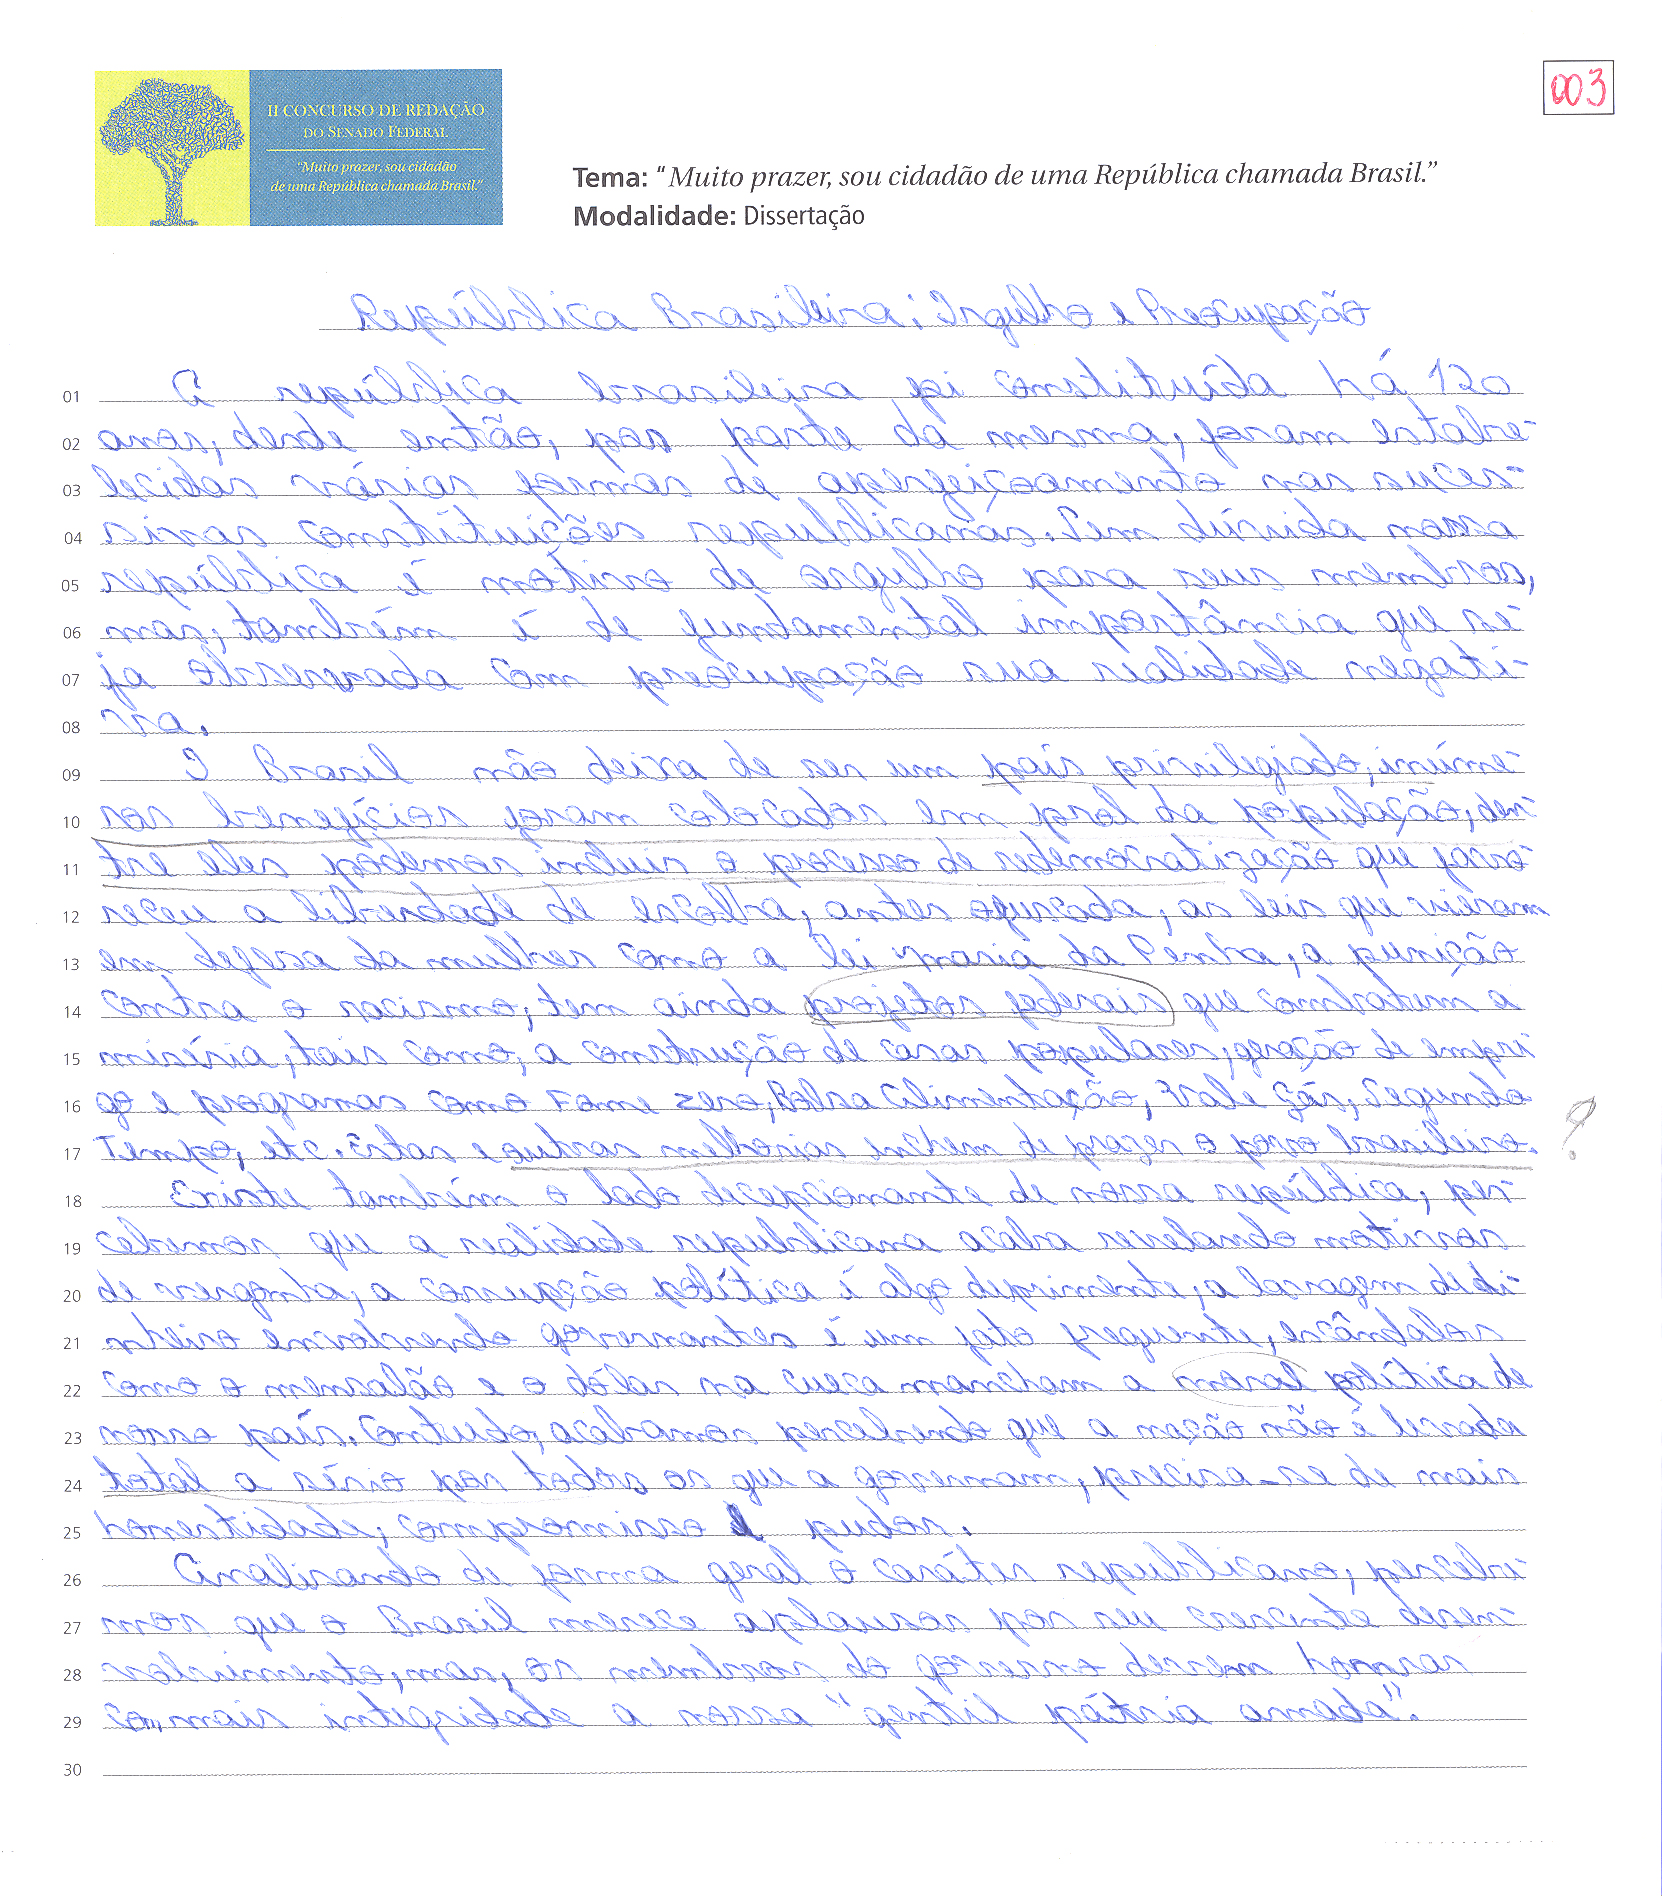 003
II CONCURSO DE REDAÇÃO
DO SENADO FEDERAL
"Muito prazer, sou cidadão
de uma República chamada Brasil."
Tema: "Muito prazer, sou cidadão de uma República chamada Brasil."
Modalidade: Dissertação
República Brasileira: Orgulho e Preocupação
01 A república brasileira foi constituída há 120
02 anos, desde então, por parte da mesma, foram estabe-
03 lecidas várias formas de aperfeiçoamento nas suces-
04 sivas constituições republicanas. Sem dúvida nossa
05 república é motivo de orgulho para seus membros,
06 mas, também é de fundamental importância que se-
07 ja observada com preocupação sua realidade negati-
08 va.
09 O Brasil não deixa de ser um país privilegiado, inúme-
10 ros benefícios foram colocados em prol da população, den-
11 tre eles podemos incluir o processo de redemocratização que favo-
12 receu a liberdade de escolha, antes ofuscada, as leis que vieram
13 em defesa da mulher como a lei Maria da Penha, a punição
14 contra o racismo, tem ainda projetos federais que combatem a
15 miséria, tais como, a construção de casas populares, geração de empre
16 go e programas como Fome zero, Bolsa Alimentação, Vale Gás, Segundo
17 Tempo, etc. Estas e outras melhorias enchem de prazer o povo brasileiro.
?
18 Existe também o lado decepcionante de nossa república, per-
19 cebemos que a realidade republicana acaba revelando motivos
20 de vergonha, a corrupção política é algo deprimente, a lavagem de di-
21 nheiro envolvendo governantes é um fato frequente, escândalos
22 como o mensalão e o dólar na cueca mancham a moral política de
23 nosso país. Contudo, acabamos percebendo que a nação não é levada
24 total a sério por todos os que a governam, precisa-se de mais
25 honestidade, compromisso e pudor.
26 Analisando de forma geral o caráter republicano, percebe-
27 mos que o Brasil merece aplausos por seu crescente desen-
28 volvimento, mas, os membros do governo devem honrar
29 com mais integridade a nossa "gentil pátria amada".
30